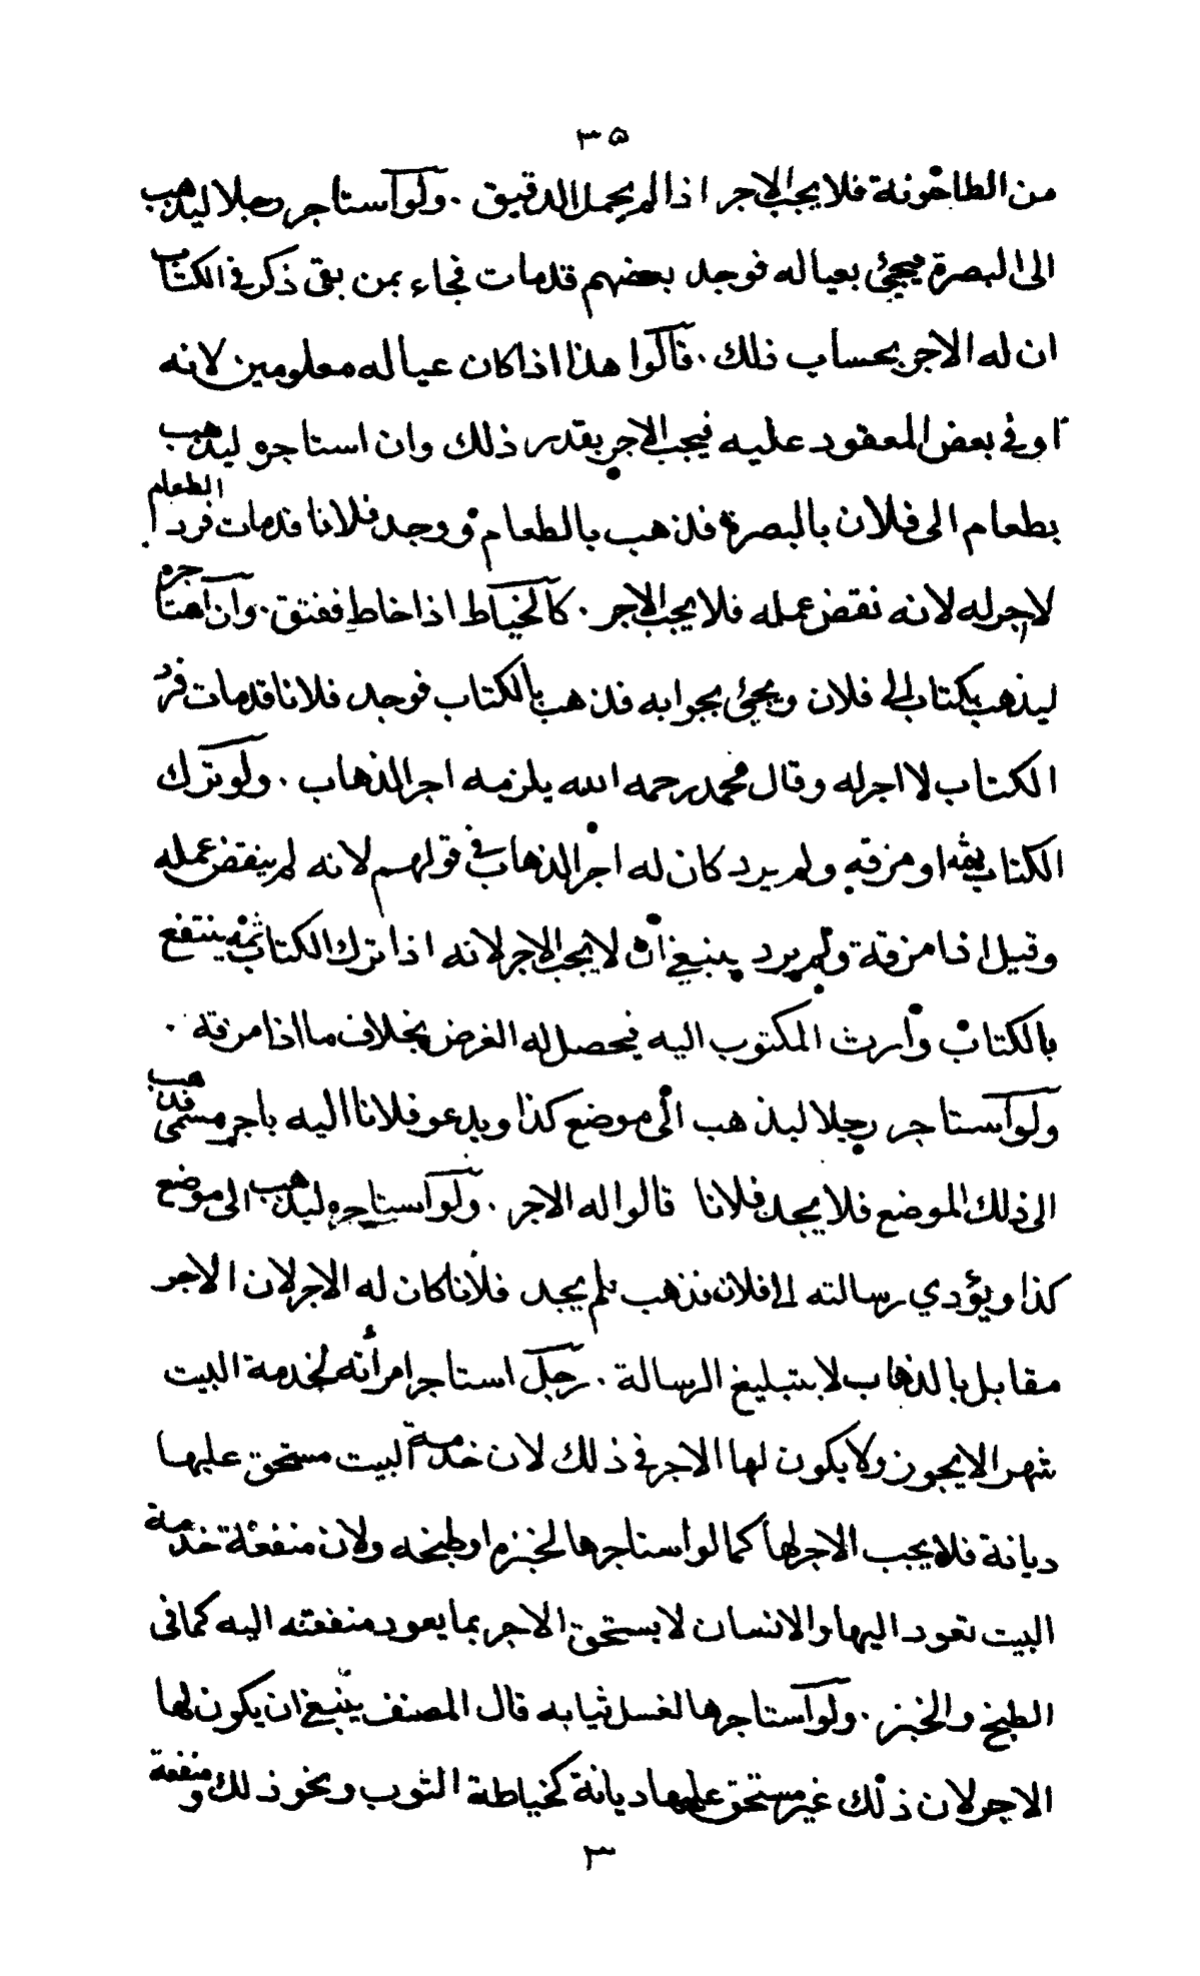 ٣٥
من الطاحونة فلا يجب الاجر اذا لم يحمل الدقيق . ولو استاجر رجلا ليذهب
الى البصرة فيجئ بعياله فوجد بعضهم قدمات فجاء بمن بقى ذكر في الكتاب
ان له الاجر بحساب ذلك . قالوا هذا اذا كان عياله معلومين لانه
اوفى بعض المعقود عليه فيجب الاجر بقدر ذلك وان استاجره ليذهب
بطعام الى فلان بالبصرة فذهب بالطعام ووجد فلانا قدمات فرد الطعام
لا اجر له لانه نقض عمله فلا يجب الاجر . كالخياط اذا خاط ففتق . وان استاجره
ليذهب بكتاب الى فلان ويجئ بجوابه فذهب بالكتاب فوجد فلانا قدمات فرد
الكتاب لا اجر له وقال محمد رحمه الله يلزمه اجر الذهاب . ولو ترك
الكتاب ثمه او مزقه ولم يرد كان له اجر الذهاب في قولهم لانه لم ينقض عمله
وقيل اذا مزقة ولم يرد ينبغي ان لا يجب الاجر لانه اذا ترك الكتاب ثمه ينتفع
بالكتاب وارث المكتوب اليه فيحصل له الغرض بخلاف ما اذا مزقة .
ولو استاجر رجلا ليذهب الى موضع كذا ويدعو فلانا اليه باجر مسمى فذهب
الى ذلك الموضع فلا يجد فلانا قالوا له الاجر . ولو استاجره ليذهب الى موضع
كذا ويؤدي رسالته الى فلان فذهب فلم يجد فلانا كان له الاجر لان الاجر
مقابل بالذهاب لا بتبليغ الرسالة . رجل استاجر امرأته لخدمة البيت
شهر الا يجوز ولا يكون لها الاجر في ذلك لان خدمة البيت مستحق عليها
ديانة فلا يجب الاجر لها كما لو استاجرها لخبز او طبخه ولان منفعة خدمة
البيت تعود اليها والانسان لا يستحق الاجر بما يعود منفعته اليه كما في
الطبخ والخبز . ولو استاجرها لغسل ثيابه قال المصنف ينبغ ان يكون لها
الاجر لان ذلك غير مستحق عليها ديانة كخياطة الثوب ونحو ذلك ومنفعة
٣